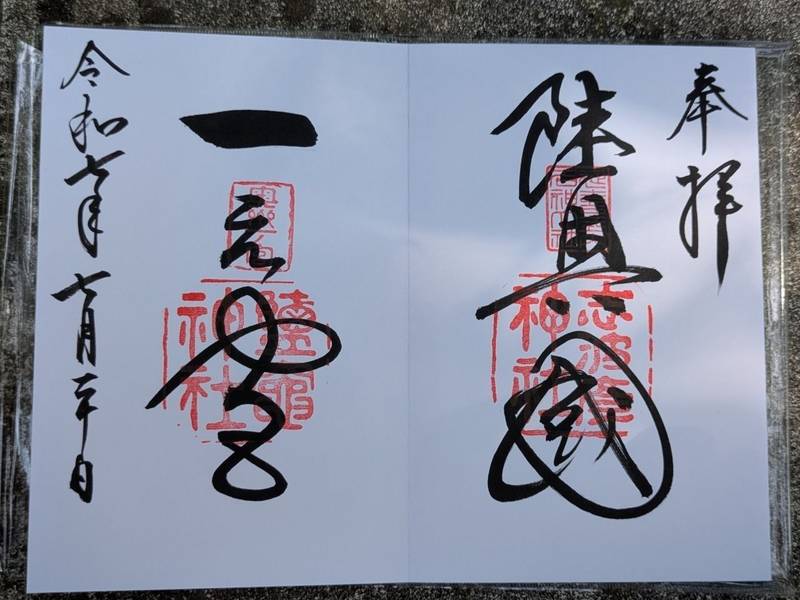 奉拝
陸奥國
志波彦神社
一之宮
鹽竈神社
令和七年七月二十日